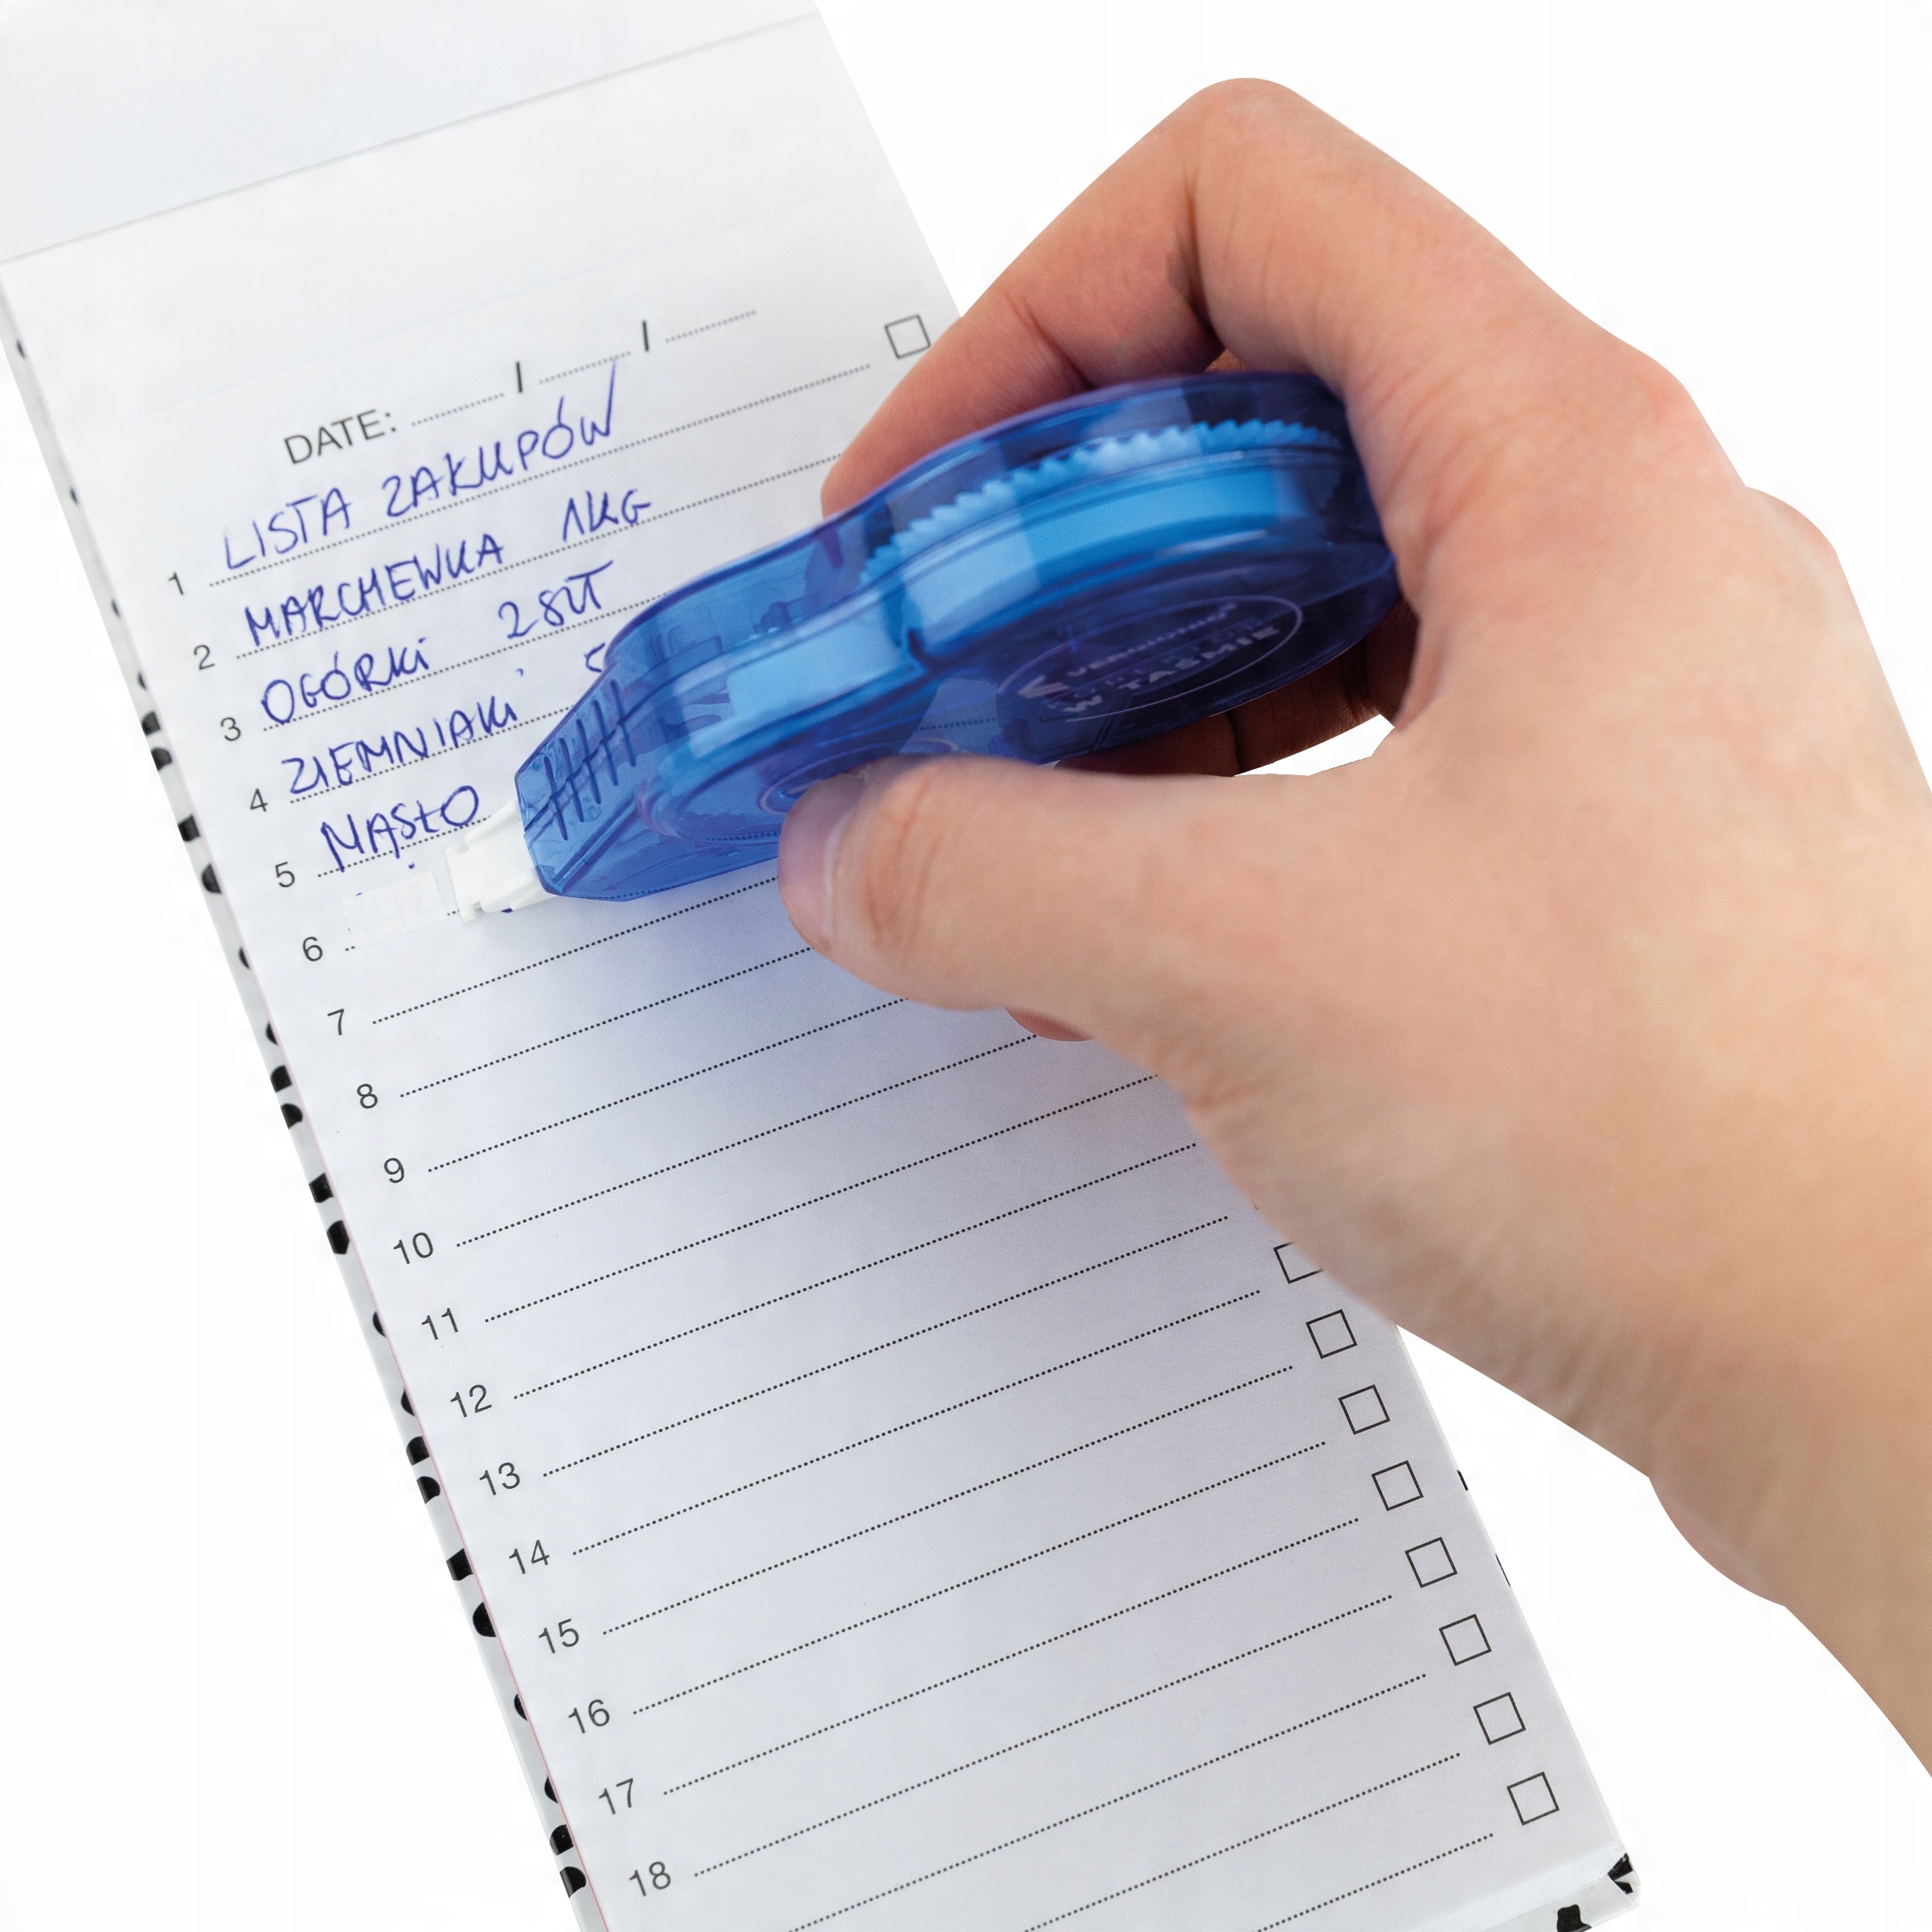 DATE: ........ / ........ / ........
1 LISTA ZAKUPÓW
2 MARCHEWKA 1KG
3 OGÓRKI 2SZT
4 ZIEMNIAKI 5
5 MASŁO
6
7
8
9
10
11
12
13
14
15
16
17
18
W TAŚMIE